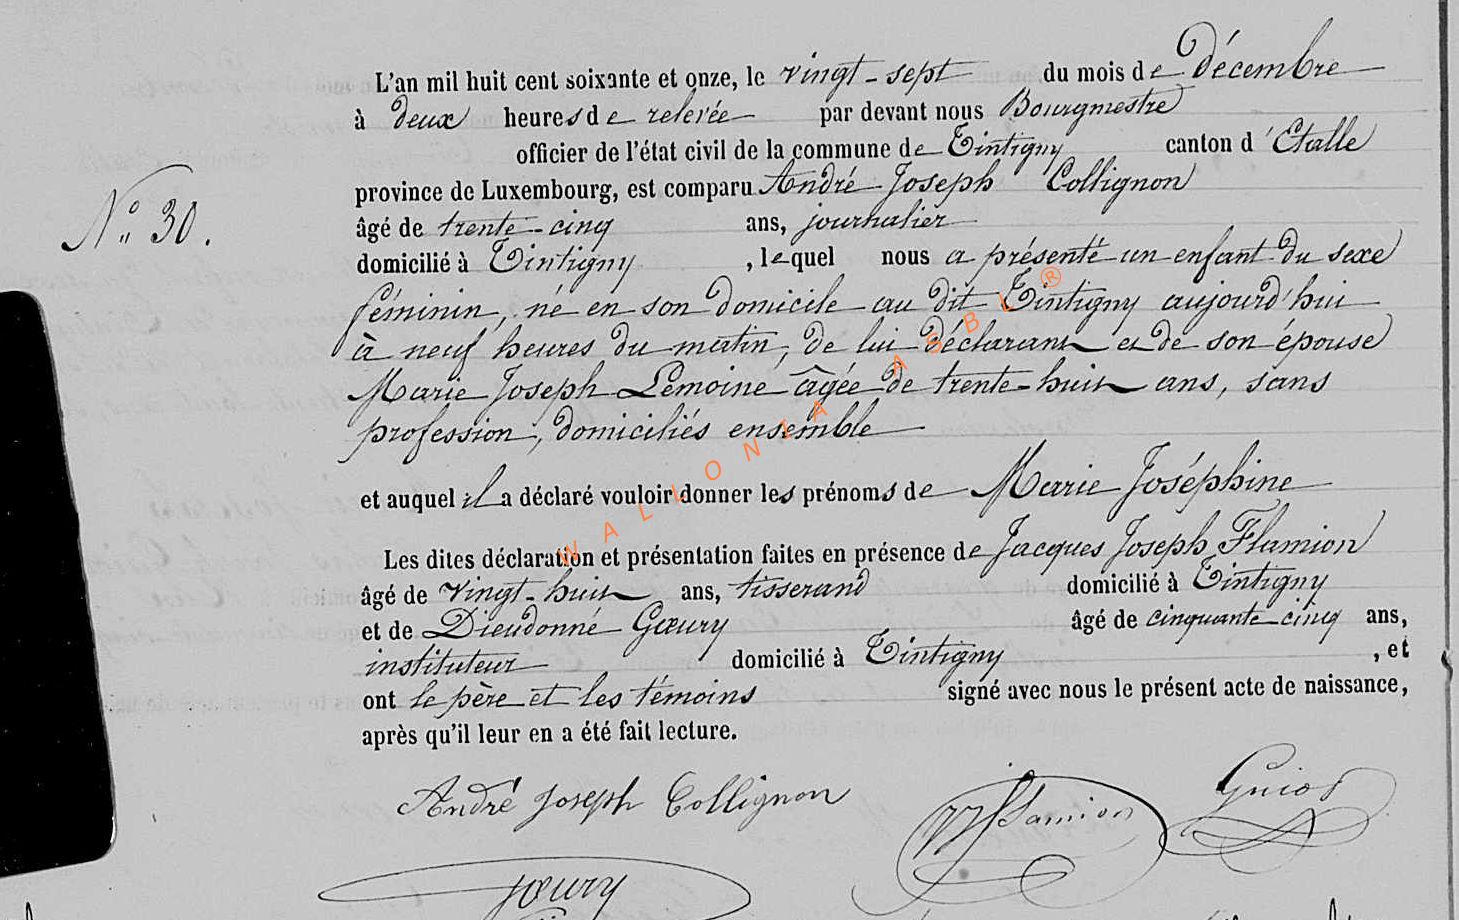 L'an mil huit cent soixante et onze, le vingt-sept du mois de Décembre
à deux heures de relevée par devant nous Bourgmestre
officier de l'état civil de la commune de Tintigny canton d'Etalle
province de Luxembourg, est comparu André Joseph Collignon
N° 30.
âgé de trente-cinq ans, journalier
domicilié à Tintigny, lequel nous a présenté un enfant du sexe
féminin, né en son domicile au dit Tintigny aujourd'hui
à neuf heures du matin, de lui déclarant et de son épouse
Marie Joseph Lemoine âgée de trente-huit ans, sans
profession, domiciliés ensemble
et auquel il a déclaré vouloir donner les prénoms de Marie Joséphine
Les dites déclaration et présentation faites en présence de Jacques Joseph Flamion
âgé de vingt-huit ans, tisserand domicilié à Tintigny
et de Dieudonné Gœury âgé de cinquante-cinq ans,
instituteur domicilié à Tintigny, et
ont le père et les témoins signé avec nous le présent acte de naissance,
après qu'il leur en a été fait lecture.
André Joseph Collignon
JJFlamion
Guiot
Gœury
WALLONIA ASBL ®